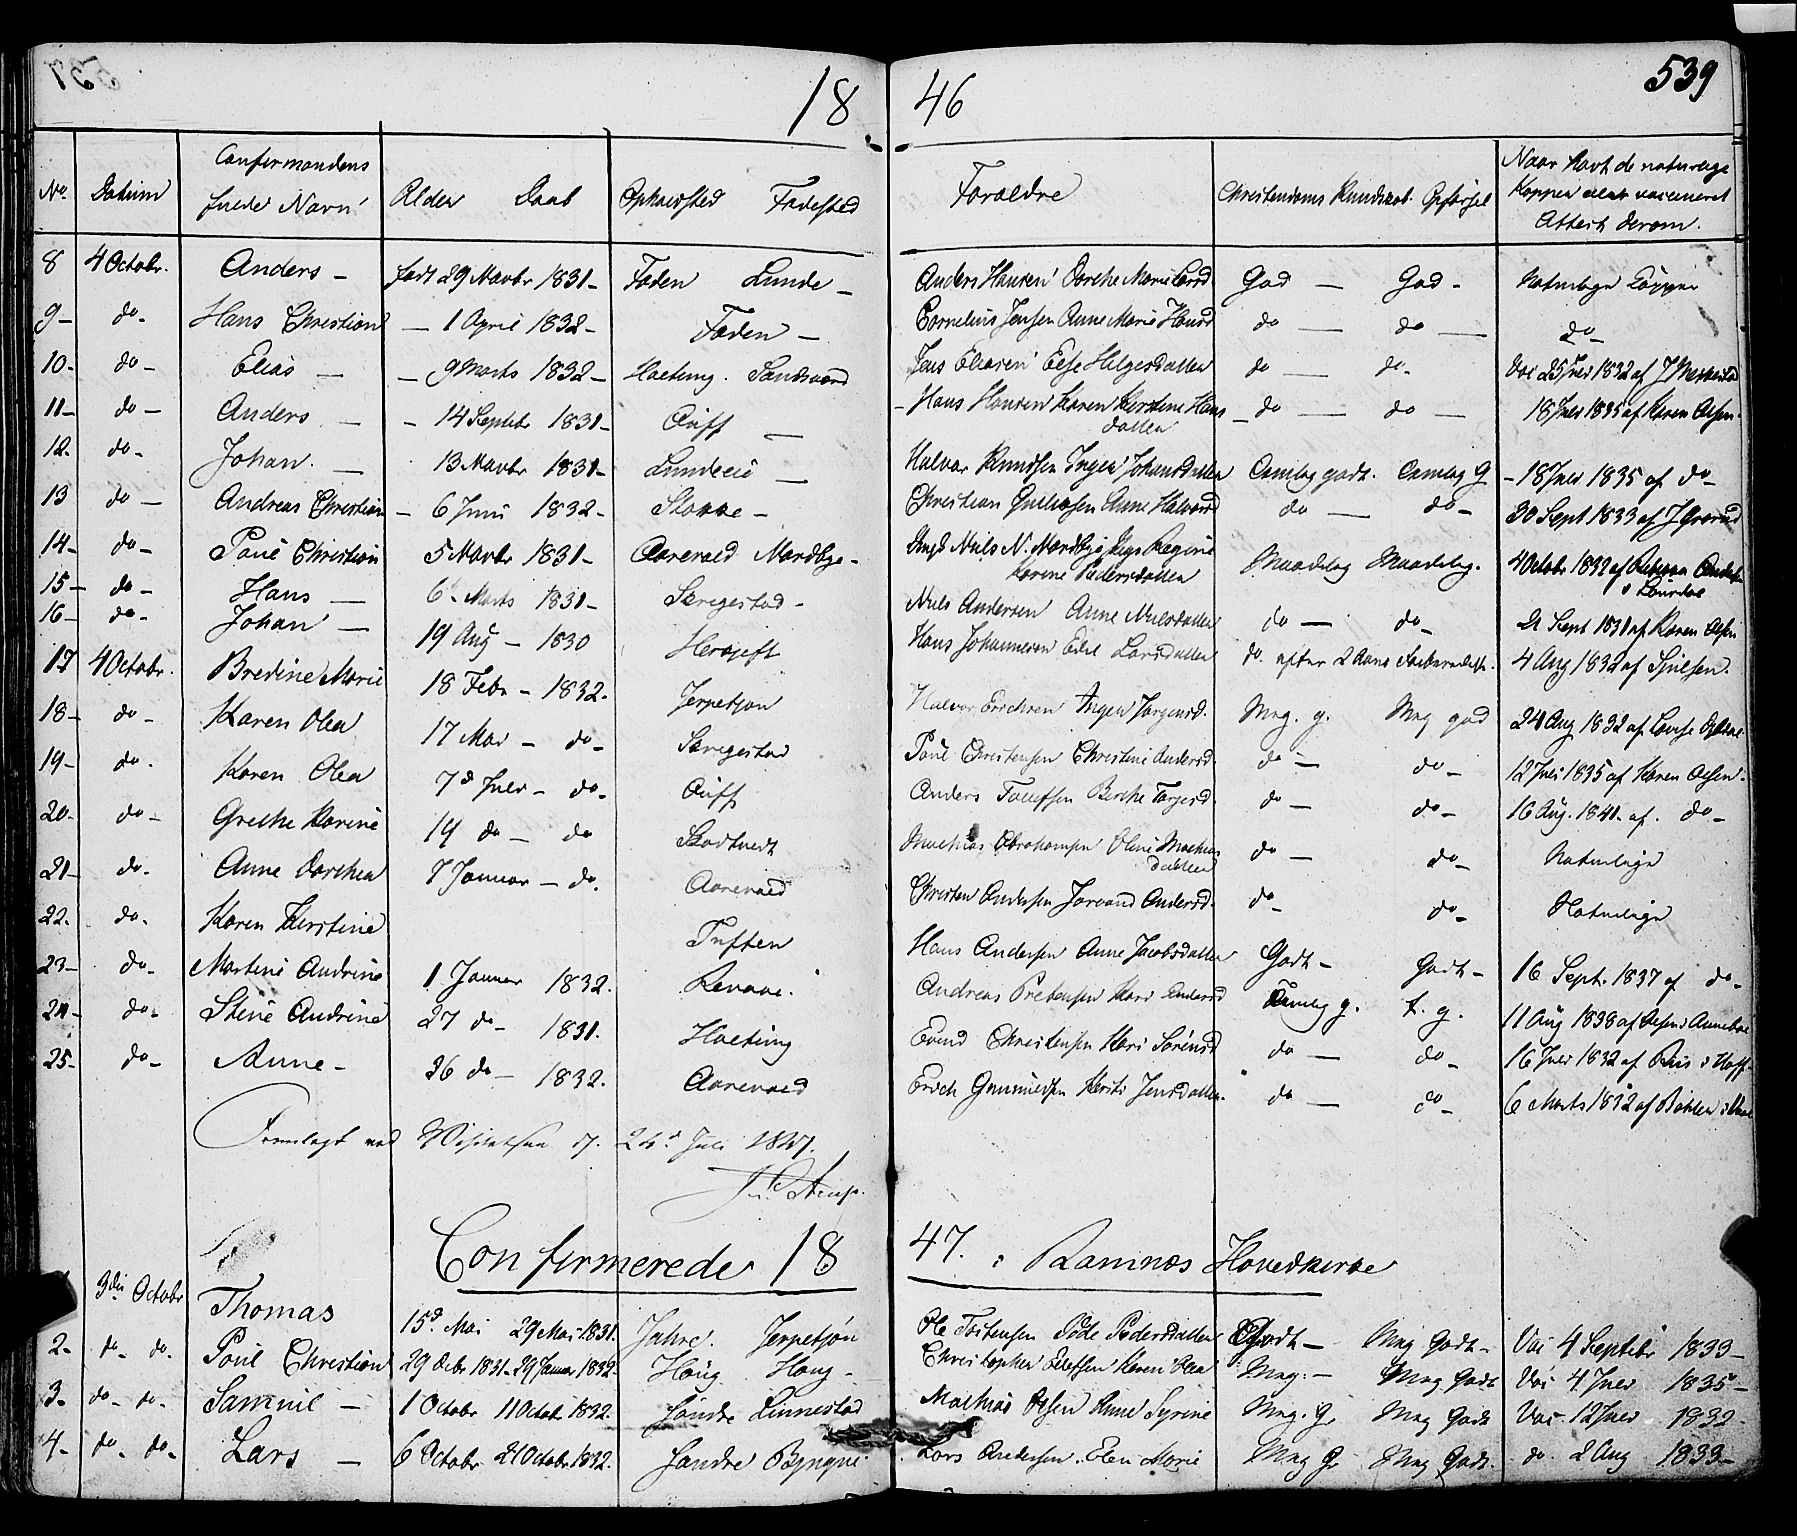 18 46 539
No. Datum Confirmandens fulde Navn Alder Daab Opholdsted Fødested Forældre Christendoms Kundskab. Opførsel Naar havt de naturlige Kopper eller vaccineret Attest derom.
8 4 Octobr. Anders - født 29 Novbr 1831 - Foden Lunde - Anders Hansen Dorthe Marie Larsd God - God - Naturlige Kopper
9 - do - Hans Christian - 1 April 1832 - Foden - Cornelius Jensen Anne Marie Hansd do - do - do -
10 - do - Elias - - 9 Marts 1832 - Holtung. Sandsvand Jens Eliasen Else Helgesdatter do - do - Vac 25 Juli 1832 af J
11 - do - Anders - - 14 Septbr 1831 - Auff - Hans Hansen Karen Kirstine Hans datter - do - do - 18 Juli 1835 af Karen Olsen.
12 - do - Johan. - 13 Novbr 1831 - - Halvor Knudsen Inger Johansdatter Temlig godt. Temlig G - 18 Juli 1835 af do -
13 do - Andreas Christian - 6 Juni 1832 - Stokke - Christian Anne Halvorsd do - do - 30 Sept 1833 af J
14 - do - Poul Christian 5 Novbr 1831 - Aarevold Nordbye - Ungk Niels N. Nordbye Pige Regine Karine Pedersdatter Maadelig Maadelig. 4 Octobr 1832 af
15 - do - Hans - 6 Marts 1831 - Skregestad - Niels Andersen Anne Nielsdatter do - do - 21 Sept 1831 af Karen Olsen
16 - do - Johan - 19 Aug - 1830 Hans Johannesen Edel Larsdatter do. efter 2 Aars Forberedelse. 4 Aug 1832 af
17 4 Octobr. Bredine Marie 18 Febr - 1832. Jerpetjøn Halvor Erichsen Inger Jørgensd. Mug. g. Mug god 24 Aug 1832 af
18 - do - Karen Olea 17 Mai - do - Skregestad Poul Christensen Christine Andersd. do - do - 12 Juli 1835 af Karen Olsen -
19 - do - Karen Olea 7d Juli - do - Auff Anders Tollefsen Berthe Torgersd. do - do - 16 Aug. 1841. af. do -
20 - do - Grethe Karine 19 do - do Skodtvedt Mathias Abrahamsen Oline Mathias datter do - do - Naturlige
21 - do - Anne Dorthea 7 Januar - do. Aarevold Christen Andersen Jørand Andersd. do - do - Naturlige
22. do - Karen Kirstine Tuften Hans Andersen Anne Jacobsdatter Godt - Godt - 16 Sept. 1837 af do -
23 - do - Martine Andrine 1 Januar 1832. Revaae. Andreas Pretersen Kari Andersd Temlig g. t. g. 11 Aug 1838 af Olsen i
24 - do - Stine Andrine 27 do - 1831. Holtung Evend Christensen Kari Sørensd do - do - 16 Juli 1832 af Riis i Hoff.
25 - do - Anne - 26 do - 1832. Aarevold Erich Gunnulfsen Kirsti Jensdatter. do - do - 6 Marts 1832 af
Fremlagt ved Visitatsen d. 24d Juli 1847.
Confirmerede 1847. i Ramnes Hovedkirke
3die Octobr Thomas 15d. Mai 29 Mai 1831. Jahre. Jerpetjøn Ole Tostensen Pedersdatter Godt - Mug Godt - Vac 4 Septbr 1833 -
2 - do - do - Poul Christian 29 Decbr 1831 - 29 Januar 1832 - Houg. Houg - Christopher Ellefsen Karen Olea Mug: - Mug Godt Vac 4 Juli 1835 -
3 - do - do - Samuel - 1 Octobr 11 Octobr 1832. Søndre Linnestad Mathias Olsen Anne Syrine Mug. G. Mug Godt Vac. 12 Juli 1832
4 - do - do - Lars - 6 Octobr 21 Octobr 1832. Søndre Lars Andersen. Elen Marie Mug G. Mug Godt. do. 2 Aug 1833 -